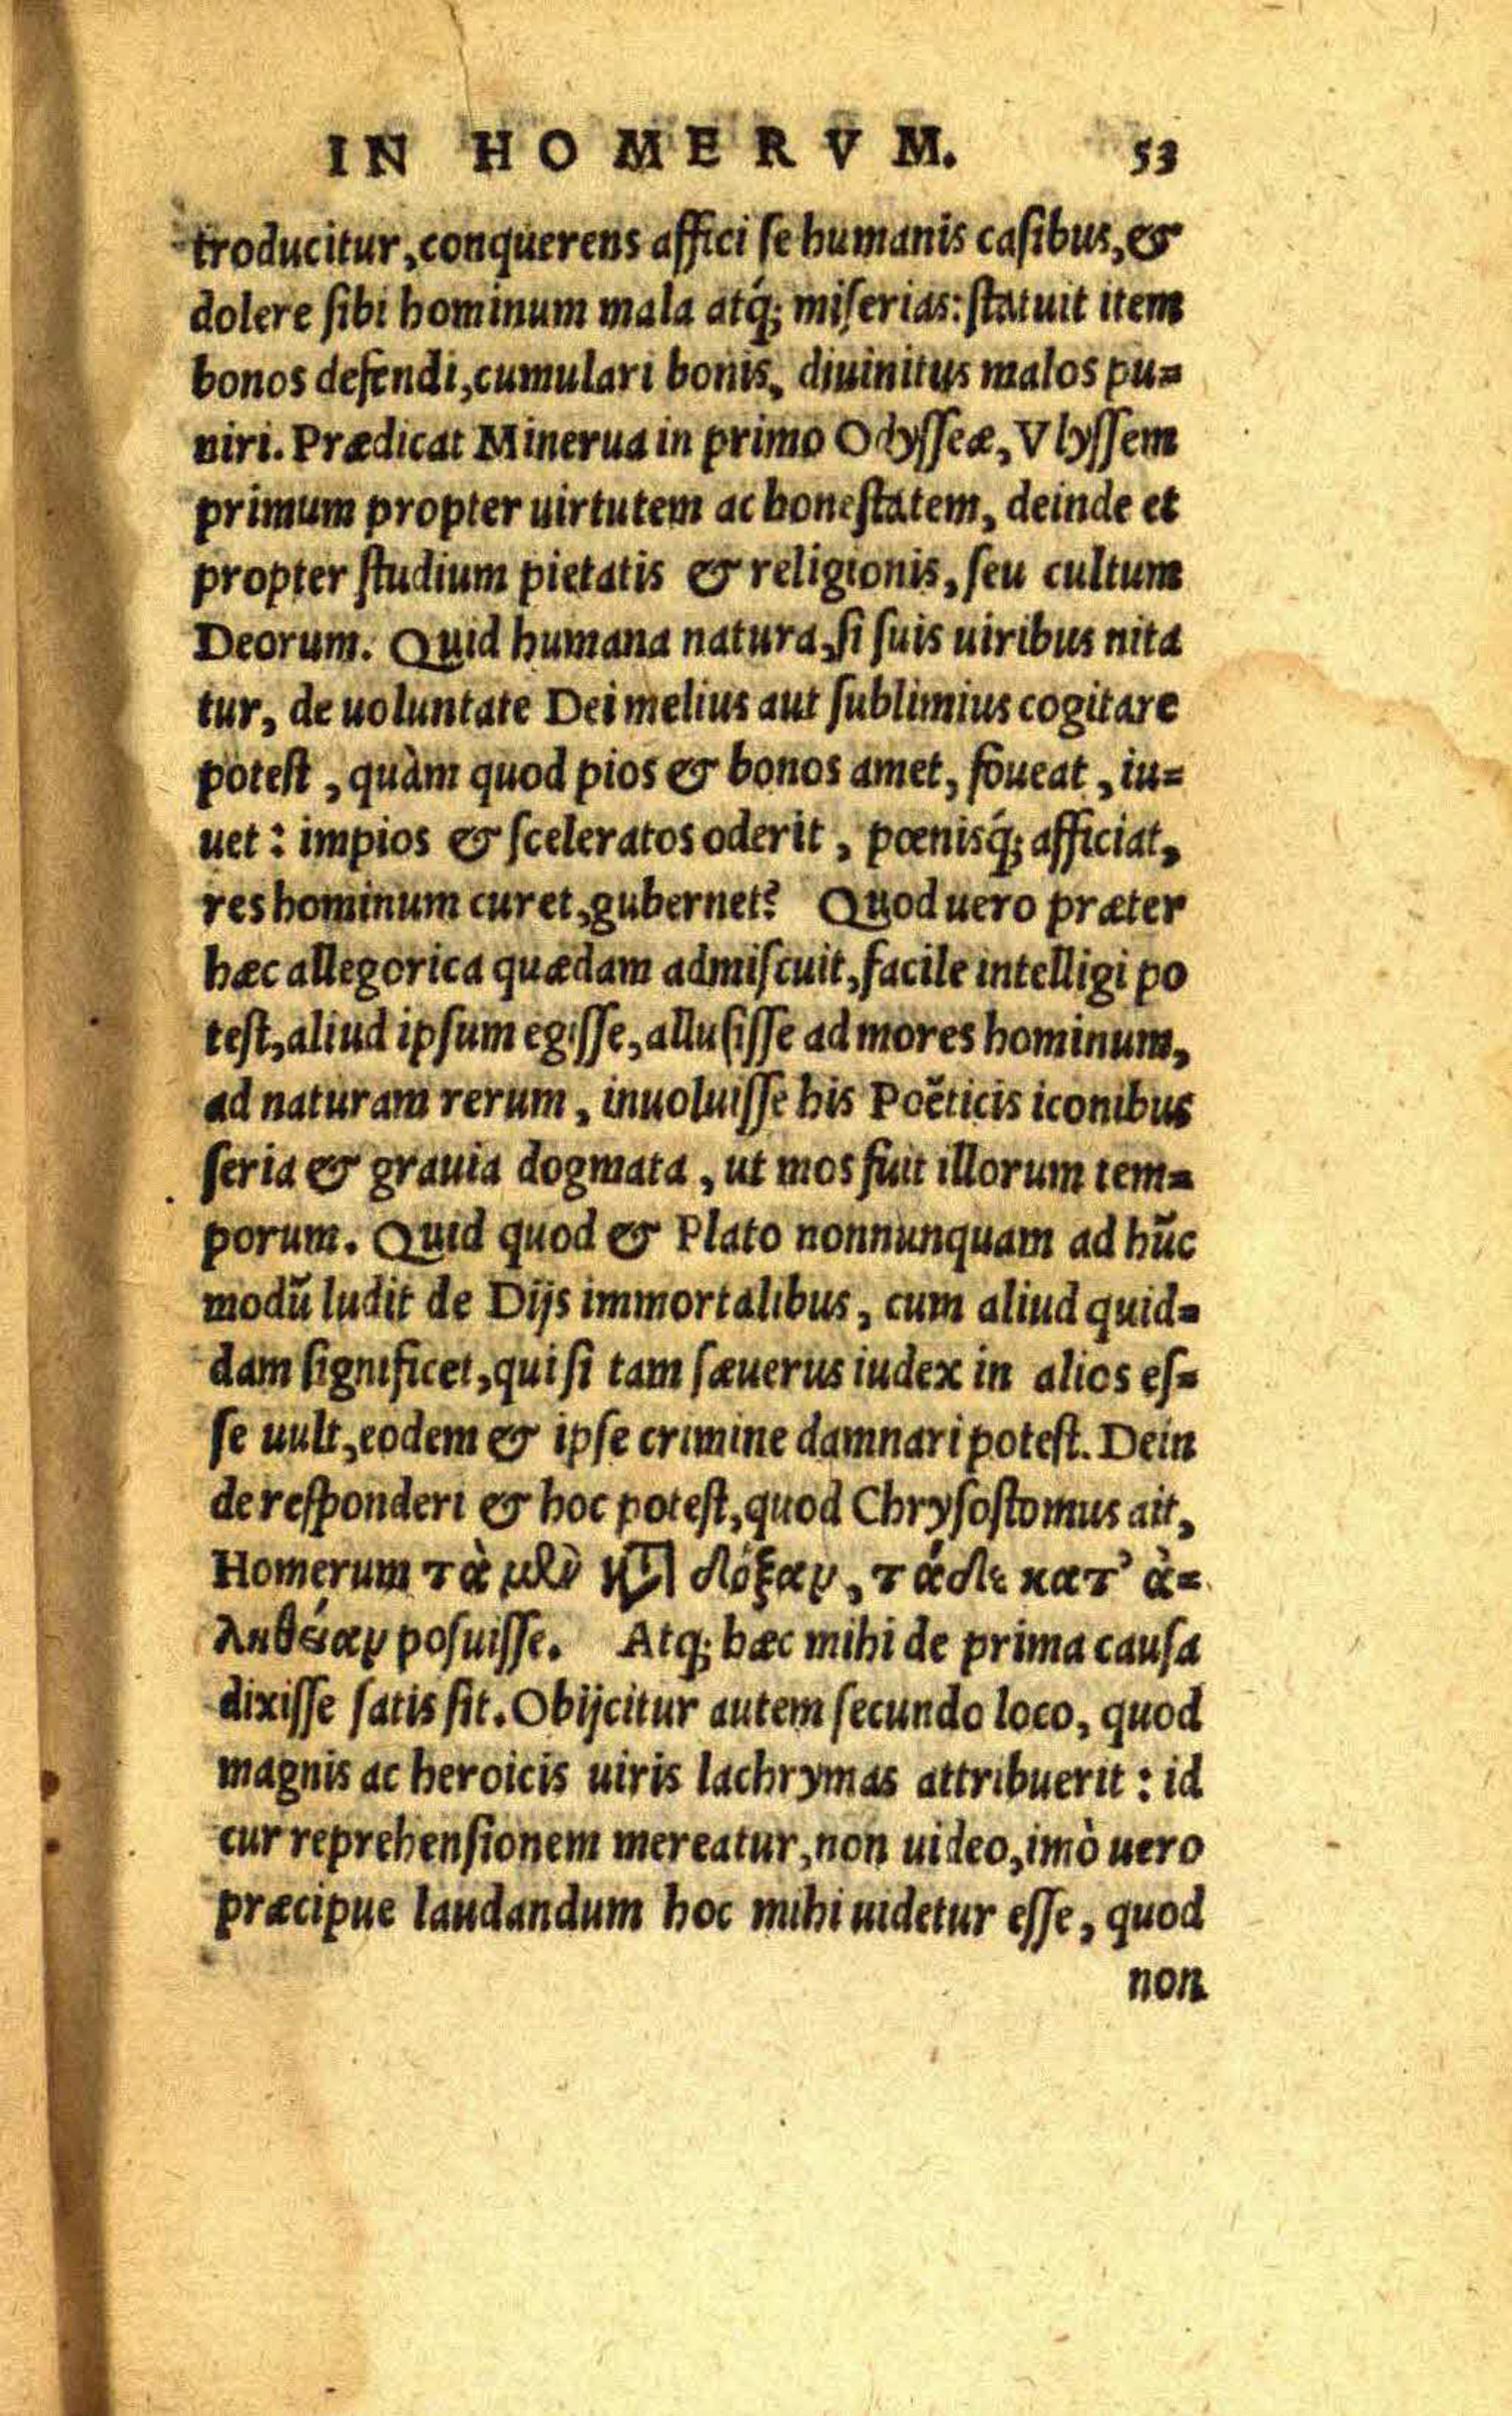 IN HOMERVM. 53
troducitur, conquerens affici se humanis casibus, &
dolere sibi hominum mala atq́; miserias: statuit item
bonos defendi, cumulari bonis, diuinitus malos pu-
niri. Prædicat Minerua in primo Odysseæ, Vlyssem
primum propter uirtutem ac honestatem, deinde et
propter studium pietatis & religionis, seu cultum
Deorum. Quid humana natura, si suis uiribus nita
tur, de uoluntate Dei melius aut sublimius cogitare
potest, quàm quod pios & bonos amet, foueat, iu-
uet: impios & sceleratos oderit, pœnisq́; afficiat,
res hominum curet, gubernet? Quod uero præter
hæc allegorica quædam admiscuit, facile intelligi po
test, aliud ipsum egisse, allusisse ad mores hominum,
ad naturam rerum, inuoluisse his Poëticis iconibus
seria & grauia dogmata, ut mos fuit illorum tem-
porum. Quid quod & Plato nonnunquam ad hūc
modū ludit de Dijs immortalibus, cum aliud quid-
dam significet, qui si tam sæuerus iudex in alios es-
se uult, eodem & ipse crimine damnari potest. Dein
de responderi & hoc potest, quod Chrysostomus ait,
Homerum τὰ μὲν κατὰ δόξαν, τάδε κατ' ἀ-
λήθειαν posuisse. Atq; hæc mihi de prima causa
dixisse satis sit. Obijcitur autem secundo loco, quod
magnis ac heroicis uiris lachrymas attribuerit: id
cur reprehensionem mereatur, non uideo, imò uero
præcipue laudandum hoc mihi uidetur esse, quod
non